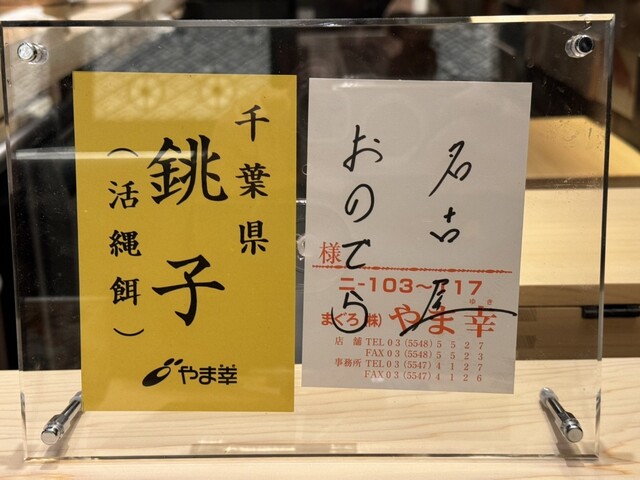 千葉県
銚子
(活縄餌)
やま幸
名古屋
おのでら
様
二-103~117
ゆき
まぐろ(株)やま幸
店舗 TEL 03(5548)5527
FAX 03(5548)5523
事務所 TEL 03(5547)4127
FAX 03(5547)4126